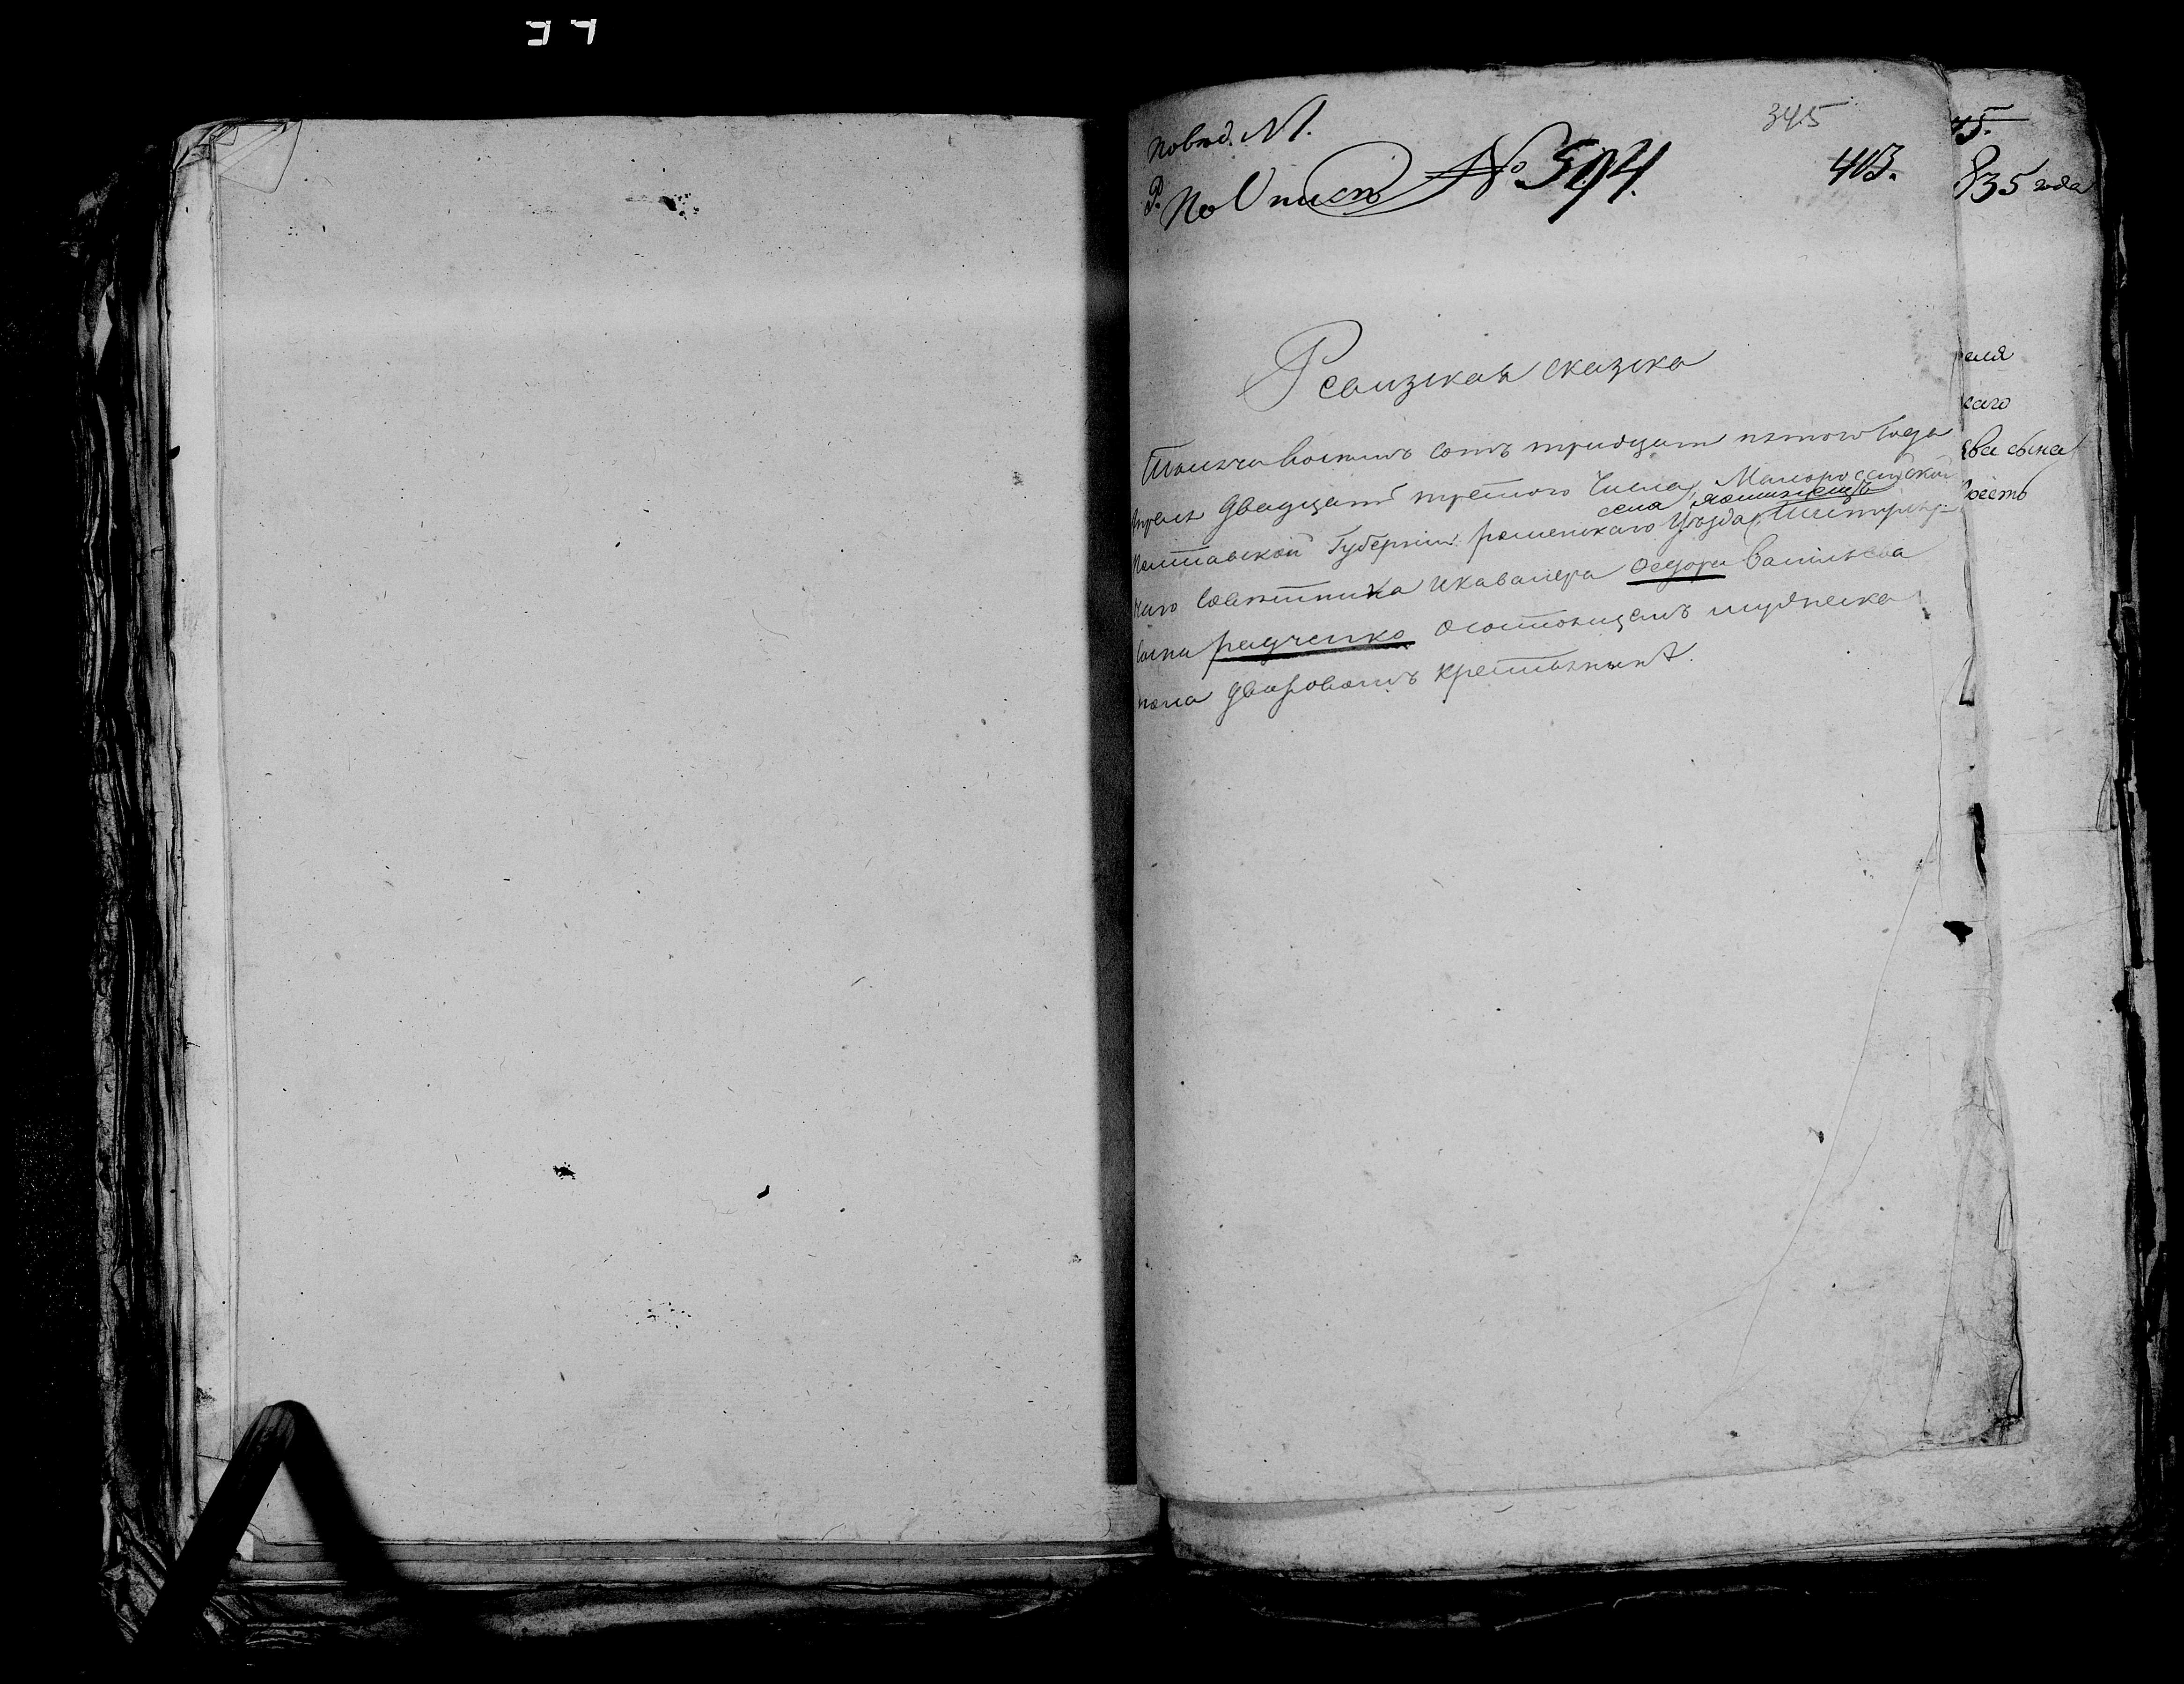 345
Повѣд. №1.
Р. По Описи № 594. 403.
Ревизская сказка
Тысяча восемь сотъ тридцать пятого Года
Апреля двадцать третого Числа, Малоросейской
села
Полтавской Губернии роменскаго уѣзда, Титуляр-
наго Советника Икавалера Федора Васильева
сына радченко осостоящемъ мужеска
пола дворовомъ крестьянинѣ.
45.
835 года
реля
каго
ева сына